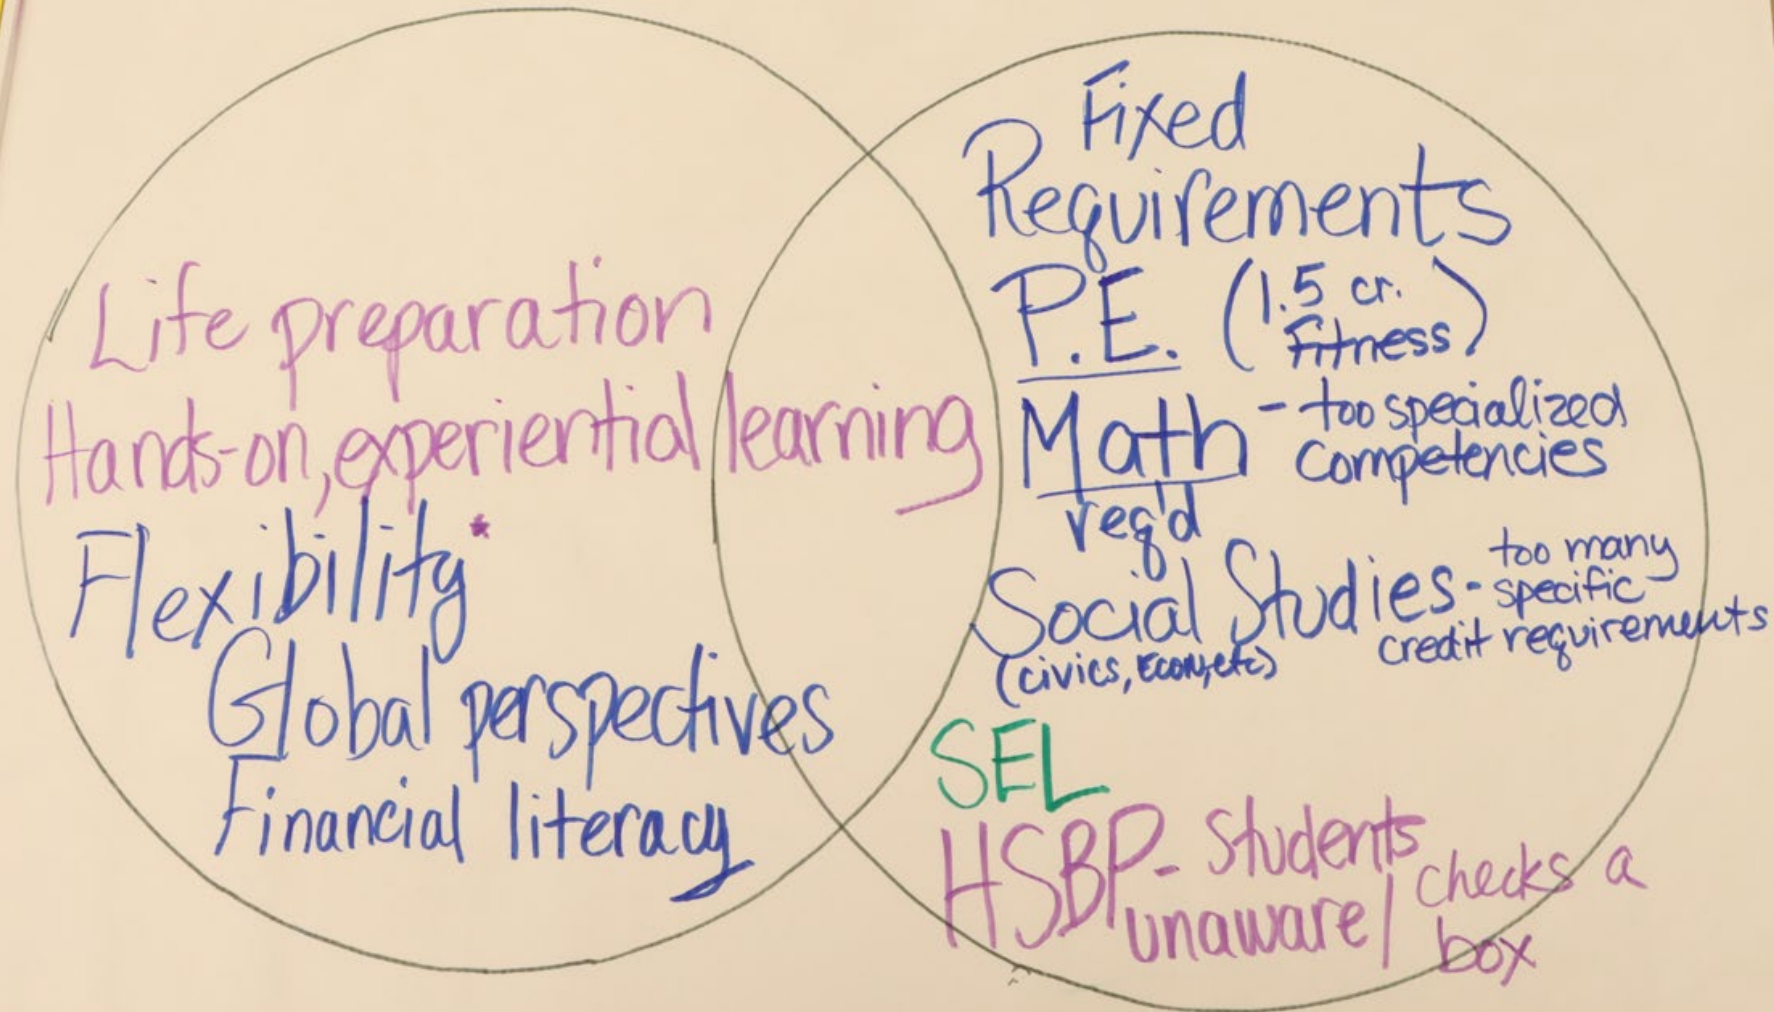 Life preparation
Hands-on, experiential learning
Flexibility*
Global perspectives
Financial literacy
Fixed
Requirements
P.E. (1.5 cr.
Fitness)
Math - too specialized
competencies
req'd
Social Studies - too many
specific
credit requirements
(civics, Econ, etc)
SEL
HSBP - Students
unaware / checks a
box